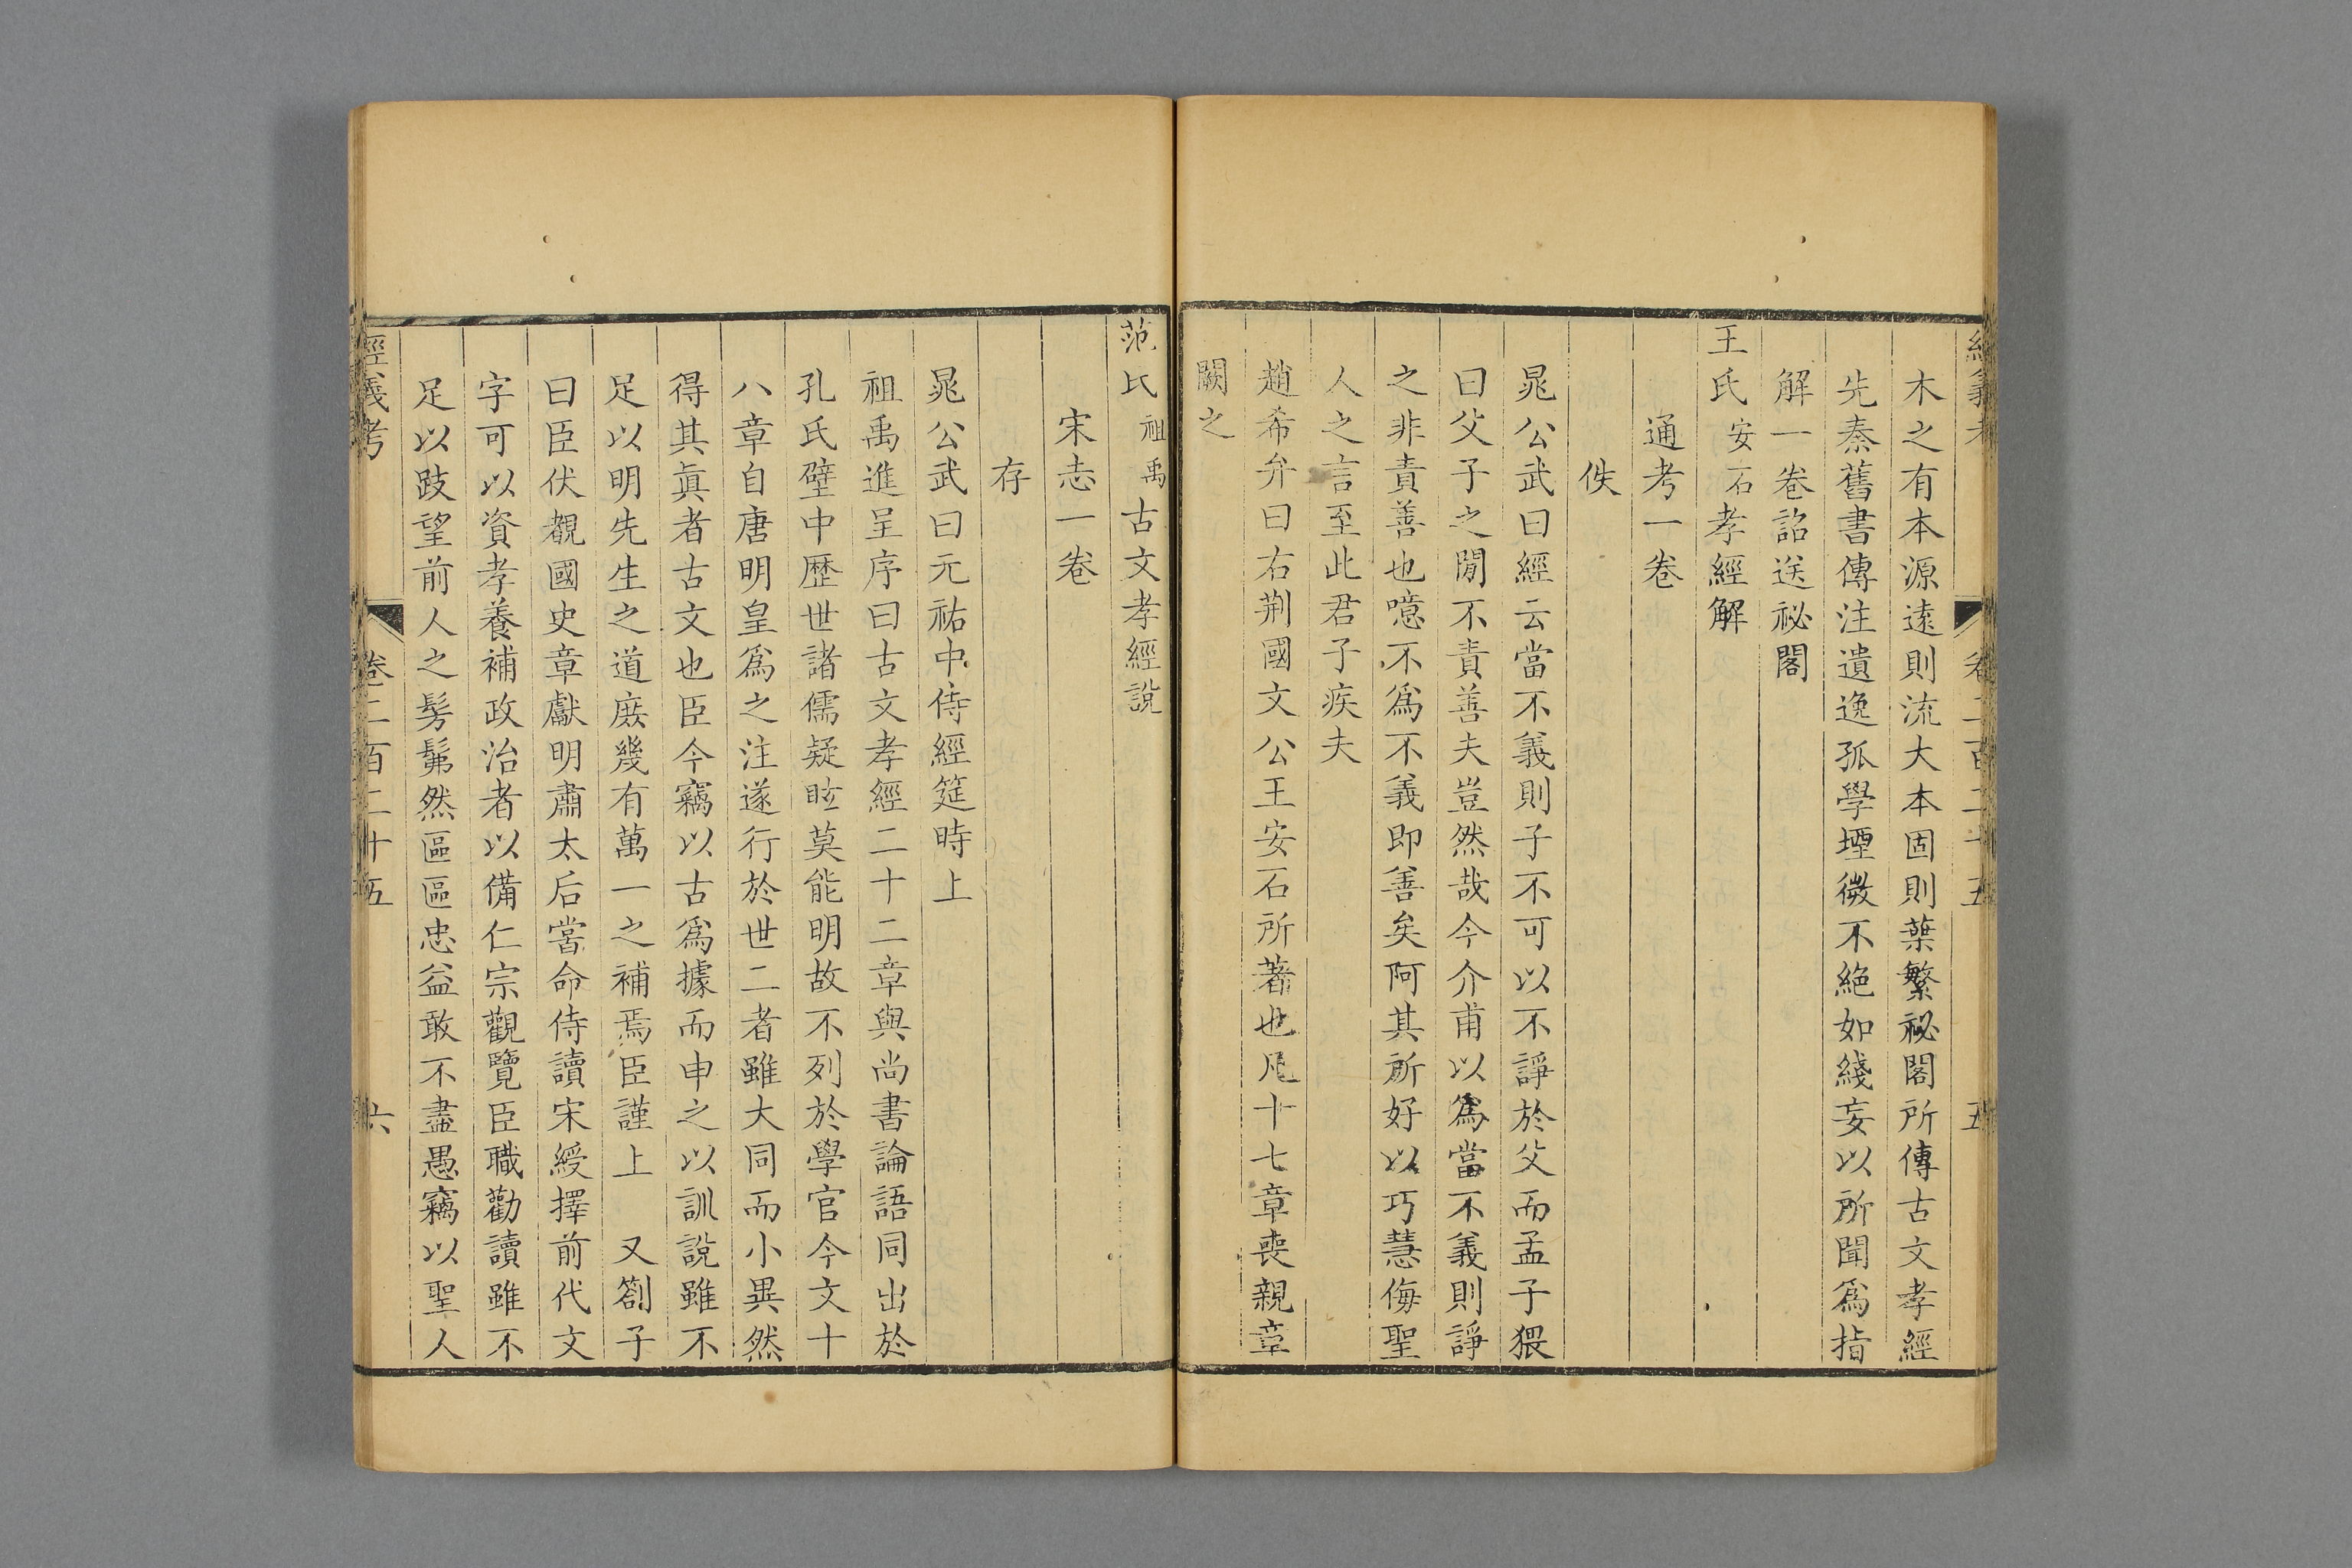 經義考 卷二百二十五 五
木之有本源遠則流大本固則葉繁祕閣所傳古文孝經
先秦舊書傳注遺逸孤學堙微不絶如綫妄以所聞爲指
解一卷詔送祕閣
王氏安石孝經解
通考一卷
佚
晁公武曰經云當不義則子不可以不諍於父而孟子猥
曰父子之閒不責善夫豈然哉今介甫以爲當不義則諍
之非責善也噫不爲不義即善矣阿其所好以巧慧侮聖
人之言至此君子疾夫
趙希弁曰右荆國文公王安石所著也凡十七章喪親章
闕之
范氏祖禹古文孝經說
宋志一卷
存
晁公武曰元祐中侍經筵時上
祖禹進呈序曰古文孝經二十二章與尚書論語同出於
孔氏壁中歷世諸儒疑眩莫能明故不列於學官今文十
八章自唐明皇爲之注遂行於世二者雖大同而小異然
得其眞者古文也臣今竊以古爲據而申之以訓說雖不
足以明先生之道庶幾有萬一之補焉臣謹上 又劄子
曰臣伏覩國史章獻明肅太后嘗命侍讀宋綬擇前代文
字可以資孝養補政治者以備仁宗觀覽臣職勸讀雖不
足以跂望前人之髣髴然區區忠益敢不盡愚竊以聖人
經義考 卷二百二十五 六